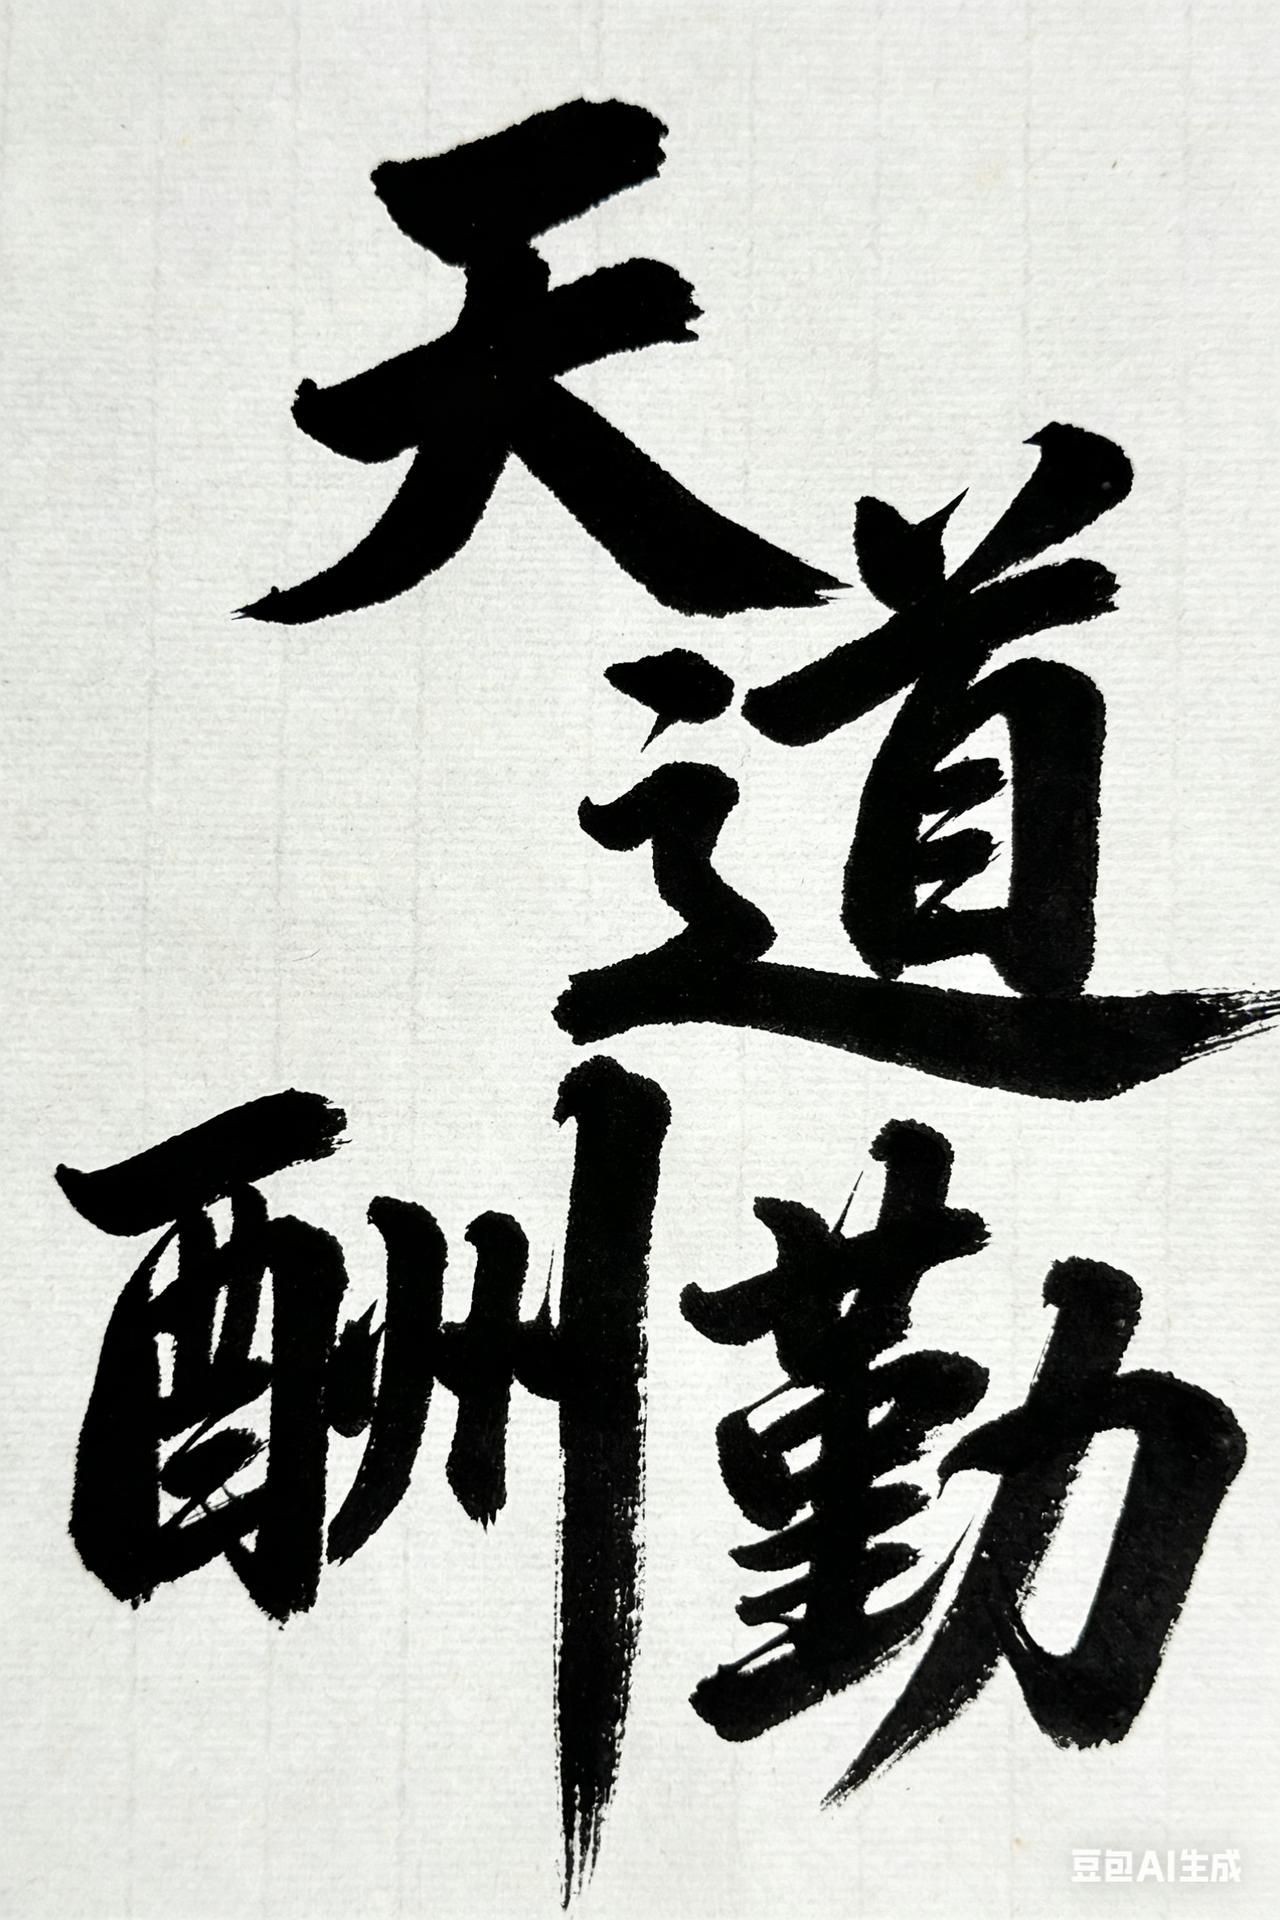 天道
酬勤
豆包AI生成